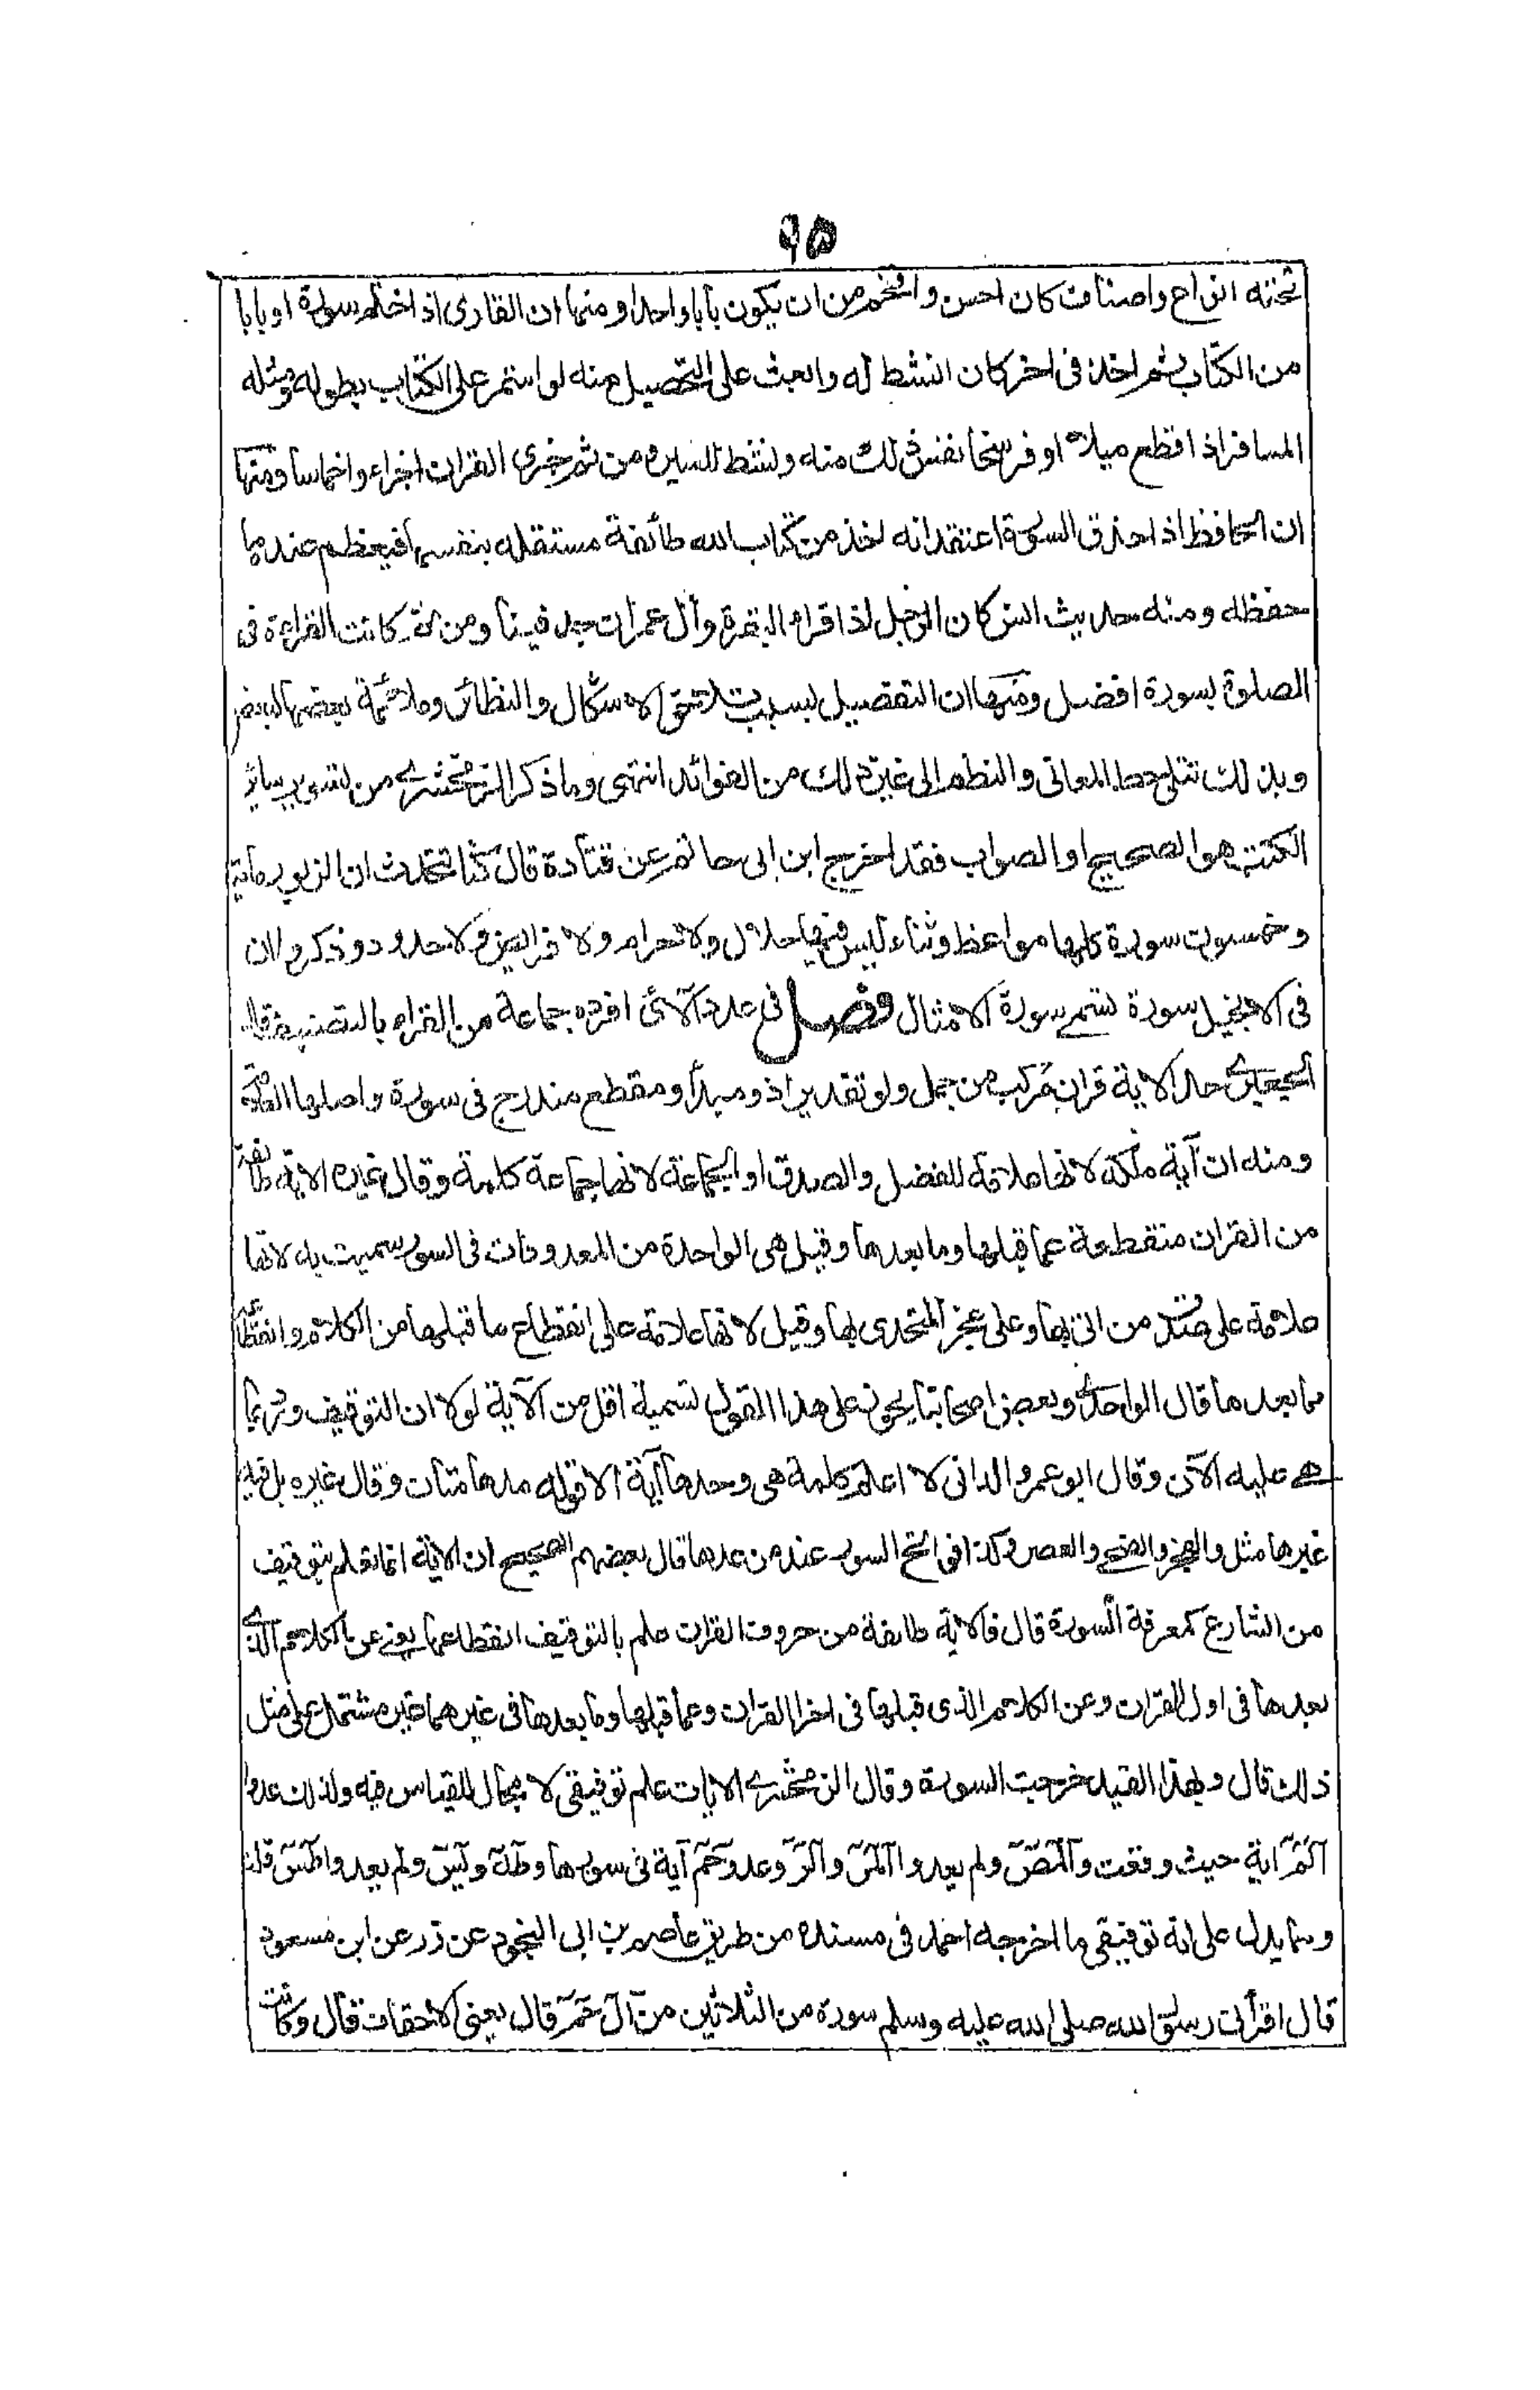 ٩٥
تحته انواع واصناف كان احسن وافخم من ان يكون بابا واحدا ومنها ان القارى اذا ختم سورة او بابا
من الكتاب ثم اخذ فى اخر كان انشط له وابعث على التحصيل منه لو استمر على الكتاب بطوله ومثله
المسافر اذا قطع ميلا او فرسخا نفس ذلك منه ونشط للسير ومن ثم جزى القران اجزاء واخماسا ومنها
ان الحافظ اذا حذق السورة اعتقد انه اخذ من كتاب الله طائفة مستقلة بنفسها فيعظم عنده ما
حفظه ومنه حديث انس كان الرجل اذا قراء البقرة وآل عمران جد فينا ومن ثمة كانت القراءة فى
الصلوة بسورة افضل ومنها ان التفصيل بسبب تلاحق الاشكال والنظائر وملائمة بعضها لبعض
وبذلك تتلاحظ المعانى والنظم الى غير ذلك من الفوائد انتهى وما ذكر الزمخشرى من تسوير سائر
الكتب هو الصحيح او الصواب فقد اخرج ابن ابى حاتم عن قتادة قال كنا نتحدث ان الزبور مأية
وخمسون سورة كلها مواعظ وثناء ليس فيها حلال ولا حرام ولا فرائض ولا حدود وذكروا ان
فى الانجيل سورة تسمى سورة الامثال فصل فى عدد الآى افرده جماعة من القراء بالتصنيف قال
الجعبرى حد الاية قران مركب من جمل ولو تقديرا ذو مبدأ ومقطع مندرج فى سورة واصلها العلامة
ومنه ان آية ملكه لانها علامة للفضل والصدق او الجماعة لانها جماعة كلمة وقال غيره الاية طائفة
من القران منقطعة عما قبلها وما بعدها وقيل هى الواحدة من المعدودات فى السور سميت به لانها
علامة على صدق من اتى بها وعلى عجز المتحدى بها وقيل لانها علامة على انقطاع ما قبلها من الكلام وانقطاعه
مما بعدها قال الواحدى وبعض اصحابنا يجوز على هذا القول تسمية اقل من الآية لولا ان التوقيف ورد بما
هى عليه الآن وقال ابو عمرو الدانى لا اعلم كلمة هى وحدها آية الا قوله مدهامتان وقال غيره بل فيه
غيرها مثل والفجر والضحى والعصر وكذا فواتح السور عند من عدها قال بعضهم الصحيح ان الاية انما تعلم بتوقيف
من الشارع كمعرفة السورة قال فالاية طائفة من حروف القران علم بالتوقيف انقطاعها يعنى عن الكلام الذى
بعدها فى اول القران وعن الكلام الذى قبلها فى اخر القران وعما قبلها وما بعدها فى غيرهما غير مشتمل على مثل
ذلك قال وبهذا القيد خرجت السورة وقال الزمخشرى الايات علم توقيفى لا مجال للقياس فيه ولذلك عدوا
آلم اية حيث وقعت وآلمص ولم يعدوا المر وآلر وعدوا حم آية فى سورها وطه ويس ولم يعدوا طس قلت
ومما يدل على انه توقيفى ما اخرجه احمد فى مسنده من طريق عاصم بن ابى النجود عن زر عن ابن مسعود
قال اقرأنى رسول الله صلى الله عليه وسلم سورة من الثلاثين من آل حم قال يعنى الاحقاف قال وكانت